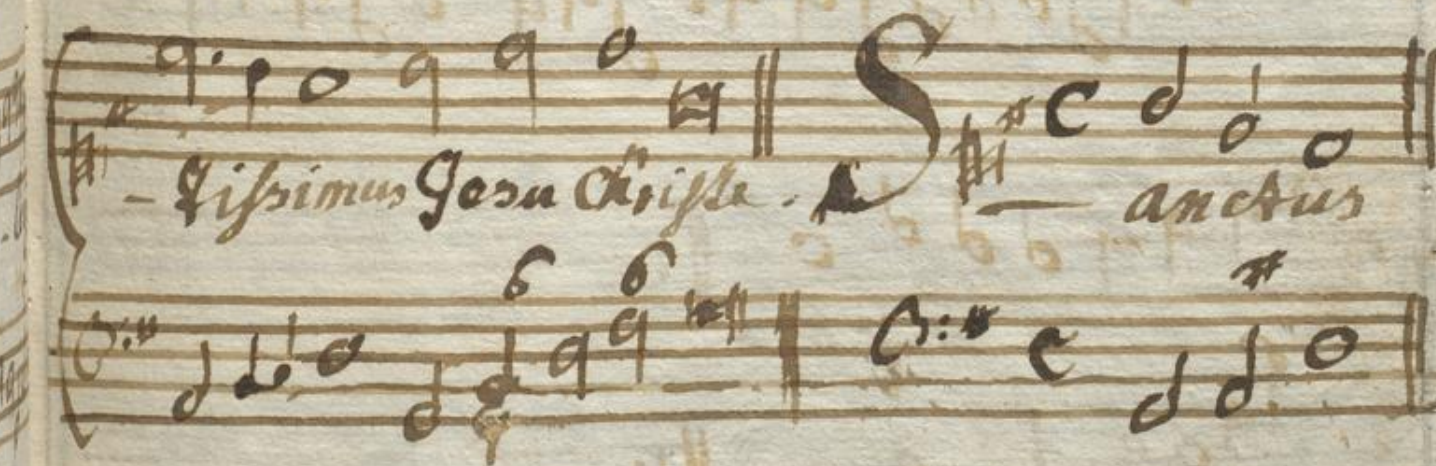 - tissimus Jesu Christe. S - anctus
6 6